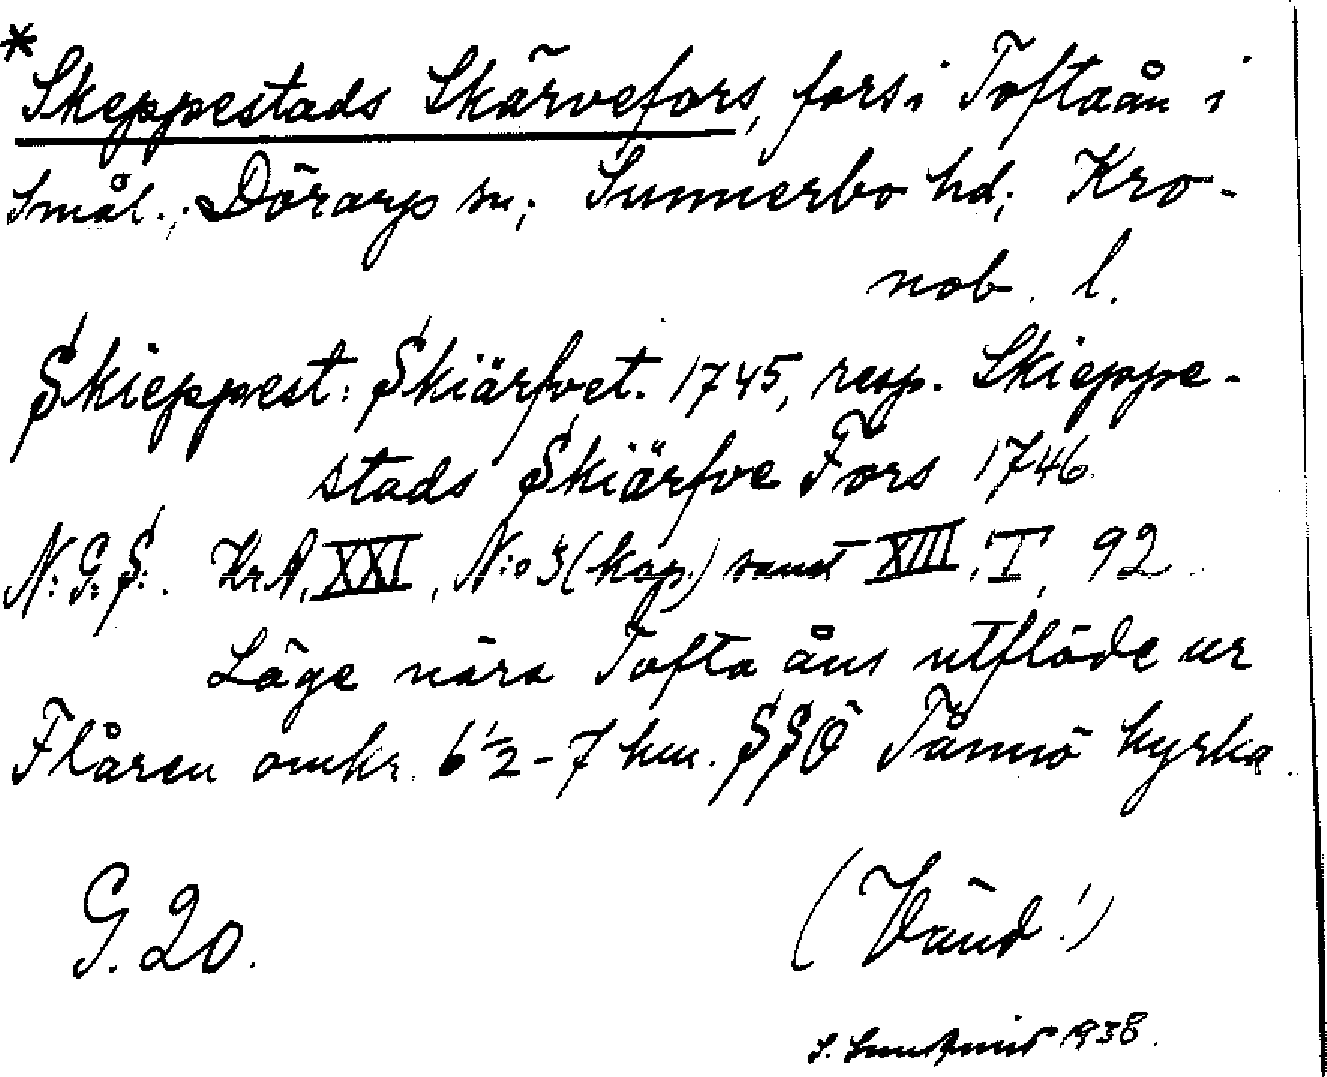 * Skeppestads Skärvefors, fors i Toftaån i
Smål.; Dörarp sn; Sunnerbo hd; Kro-
nob. l.
Skieppest: Skiärfvet. 1745, resp. Skieppe-
stads Skiärfve Fors 1746.
N: G: S:. Kr.A. XXI, N:o 3 (kop.) samt XIII, I, 92.
Läge nära Tofta åns utflöde ur
Flåren omkr. 6½-7 km. SSÖ Tånnö kyrka.
G. 20.
(Vänd!)
S. 1938.